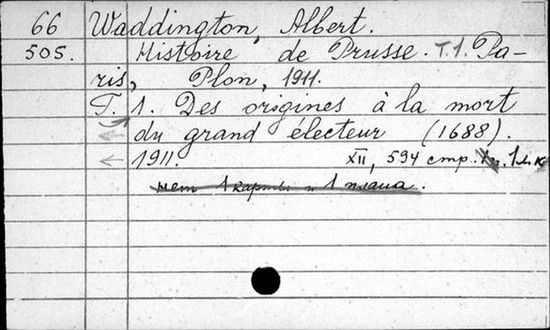 66 Waddington, Albert.
505. Histoire de Prusse. T.1. Pa-
ris, Plon, 1911.
T. 1. Des origines à la mort
du grand électeur (1688).
1911. XII, 594 стр.
нет 1 карты и 1 плана.